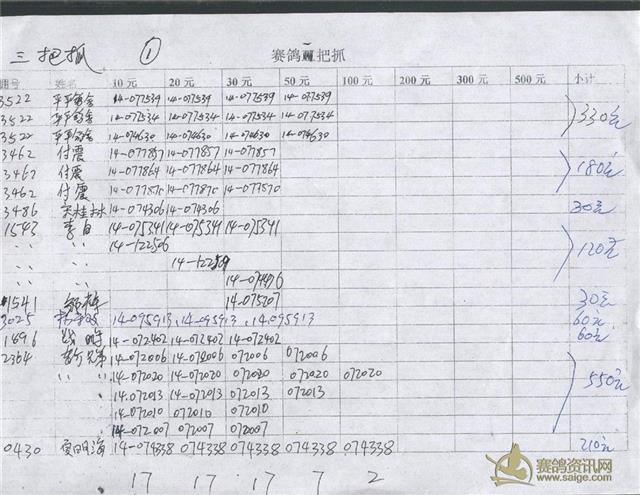 三把抓 ① 赛鸽三把抓
棚号 姓名 10元 20元 30元 50元 100元 200元 300元 500元 小计
3522 14-077539 14-077539 14-077539 14-077539
3522 14-077534 14-077534 14-077534 14-077534 330元
3522 14-074630 14-074630 14-074630 14-074630
3462 付震 14-077857 14-077857 14-077857
3462 付震 14-077864 14-077864 14-077864 180元
3462 付震 14-077870 14-077870 14-077870
3486 宋桂林 14-074306 14-074306 30元
1543 李自 14-075341 14-075341 14-075341
〃 〃 14-122506 120元
〃 〃 14-122509
〃 〃
1541 14-075207 30元
3025 14-095913 14-095913 14-095913 60元
1896 14-072402 14-072402 14-072402 60元
2364 14-072006 14-072006 072006 072006
〃 〃 14-072020 14-072020 072020 072020 072020
〃 14-072013 14-072013 072013 072013 550元
14-072010 072010 072010
14-072007 072007 072007
0430 贾明海 14-074338 074338 074338 074338 074338 210元
17 17 17 7 2
赛鸽资讯网
www.saige.com